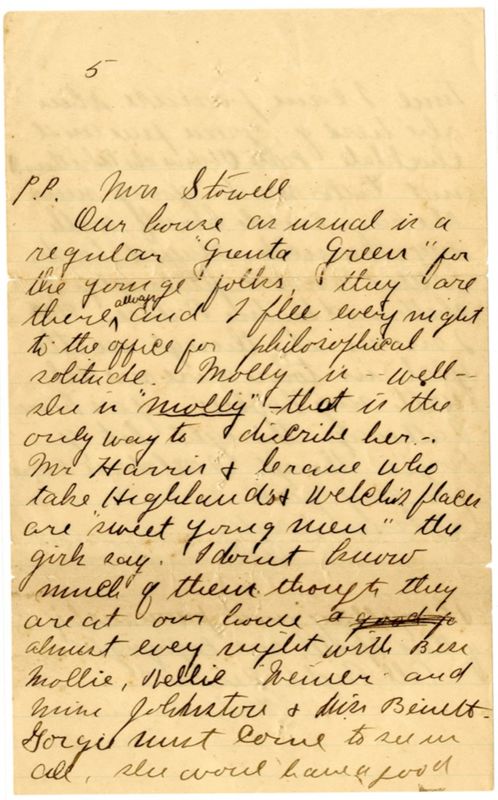 5
P.P. Mrs Stowell
Our house as usual is a
regular "Grenta Green" for
the younge folks, they are
there, always and I flee every night
to the office for philosophical
solitude. Molly is -- well --
she is "molly" - that is the
only way to discribe her.-
Mr Harris & Crane who
take Highland's & Welch's places
are "sweet young men" the
girls say. I dont know
much of them though they
are at our house a good
almost evey night with Bess
Mollie, Nellie Weiner and
Mine Johnston & Miss Benett-
Gorgie must come to see us
all, she would have a good